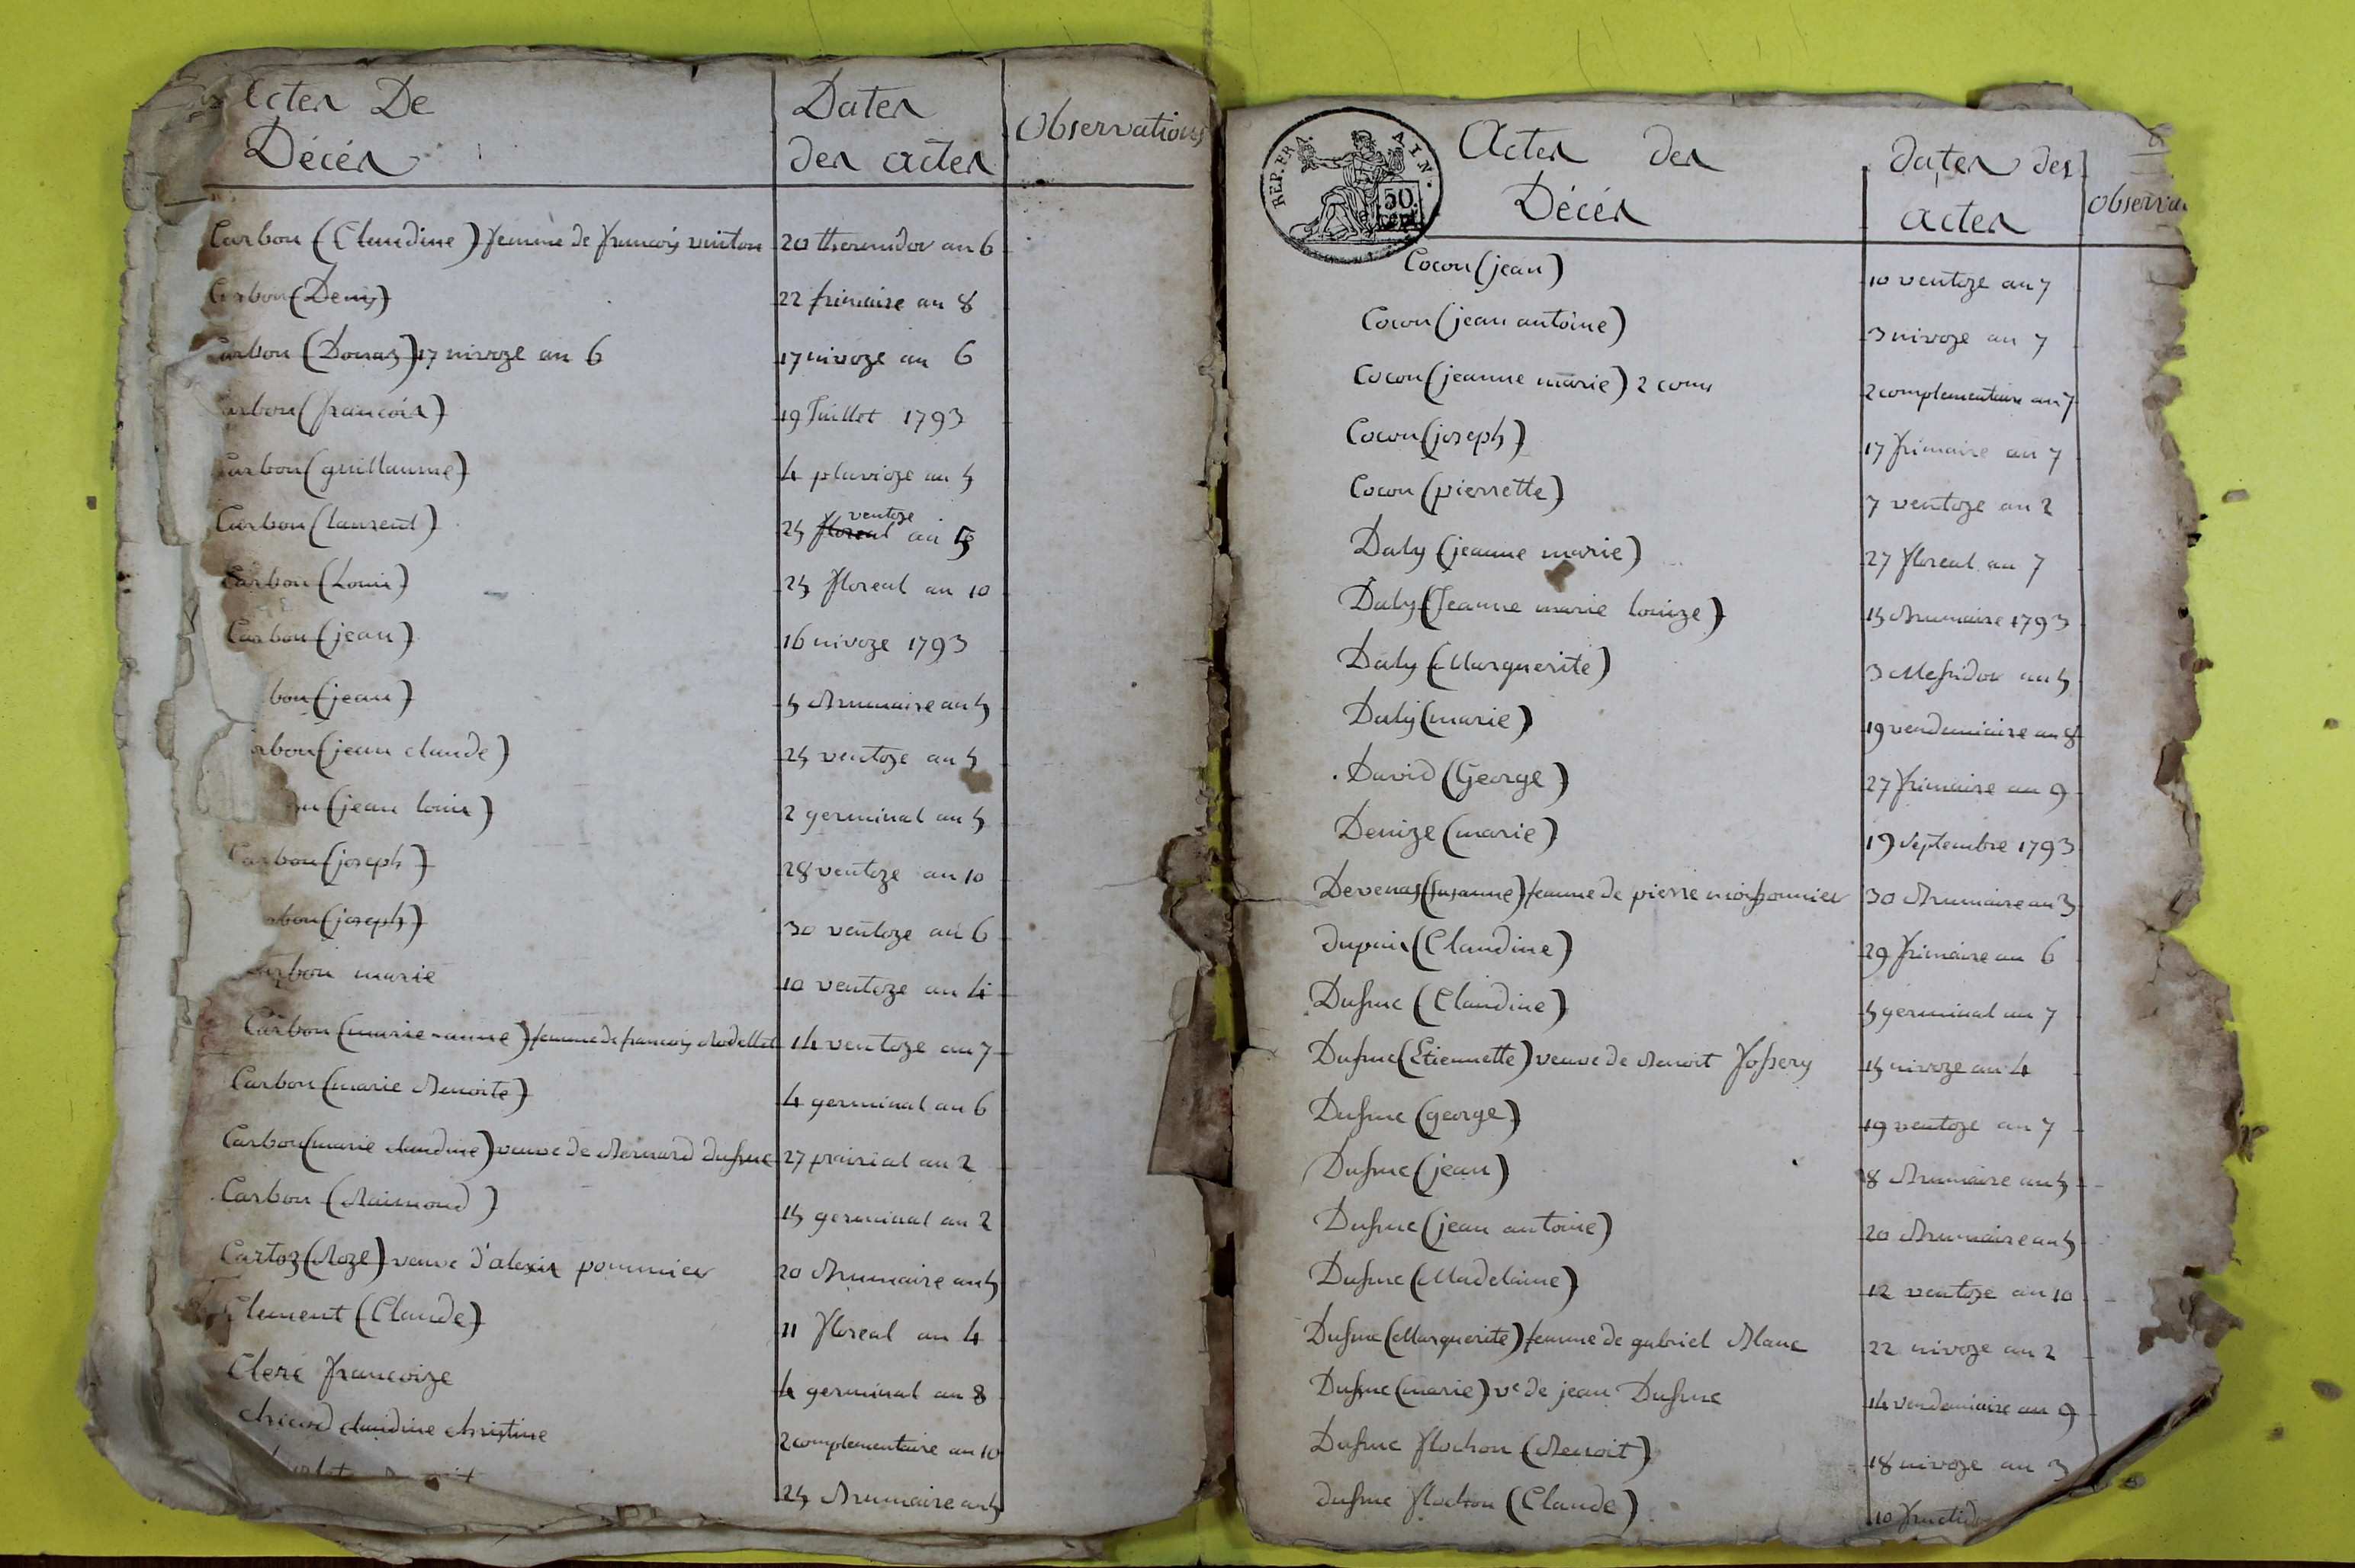 Actes De
Décés
Dates
des actes
Observations
Carbon (Claudine) femme de françois
20 thermidor an 6
Carbon (Denis)
22 frimaire an 8
Carbon (Donaz) 17 nivoze an 6
17 nivoze an 6
Carbon (françois)
19 Juillet 1793
Carbon (guillaume)
4 pluvioze an 5
Carbon (laurent)
ventoze
25 floreal an 5
Carbon (Louis)
25 floreal an 10
Carbon (jean)
16 nivoze 1793
bon (jean)
5 Brumaire an 5
rbon (jean claude)
25 ventoze an 5
on (jean louis)
2 germinal an 5
Carbon (joseph)
28 ventoze an 10
rbon (joseph)
30 ventoze an 6
Carbon marie
10 ventoze an 4
Carbon (marie-anne) femme de françois Rodellet
14 ventoze an 7
Carbon (marie Benoite)
4 germinal an 6
Carbon (marie claudine) veuve de Bernard Dufruc
27 prairial an 2
Carbon (Raimond)
15 germinal an 2
Cartoz (Roze) veuve d'alexis pommier
20 Brumaire an 5
Clement (Claude)
11 floreal an 4
Clerc francoize
4 germinal an 8
chicod claudine christine
2 complementaire an 10
25 Brumaire an 5
REP. FRA.
AIN.
50
cent
Actes des
Décés
dates des
actes
Observa
Cocon (jean)
10 ventoze an 7
Cocon (jean antoine)
3 nivoze an 7
Cocon (jeanne marie) 2 com
2 complementaire an 7
Cocon (joseph)
17 frimaire an 7
Cocon (pierrette)
7 ventoze an 2
Daly (jeanne marie)
27 floreal an 7
Daly (Jeanne marie louize)
15 Brumaire 1793
Daly (Marguerite)
3 Messidor an 5
Daly (marie)
19 vendemiaire an 8
David (George)
27 frimaire an 9
Denize (marie)
19 septembre 1793
Devenas (suzanne) femme de pierre moissonnier
30 Brumaire an 3
dupuis (Claudine)
29 frimaire an 6
Dufruc (Claudine)
5 germinal an 7
Dufruc (Etiennette) veuve de Benoit Jossery
15 nivoze an 4
Dufruc (george)
19 ventoze an 7
Dufruc (jean)
18 Brumaire an 5
Dufruc (jean antoine)
20 Brumaire an 5
Dufruc (Madelaine)
12 ventoze an 10
Dufruc (Marguerite) femme de gabriel Blanc
22 nivoze an 2
Dufruc (marie) ve de jean Dufruc
14 vendemiaire an 9
Dufruc flochon (Benoit)
18 nivoze an 3
dufruc flochon (Claude)
10 fructid